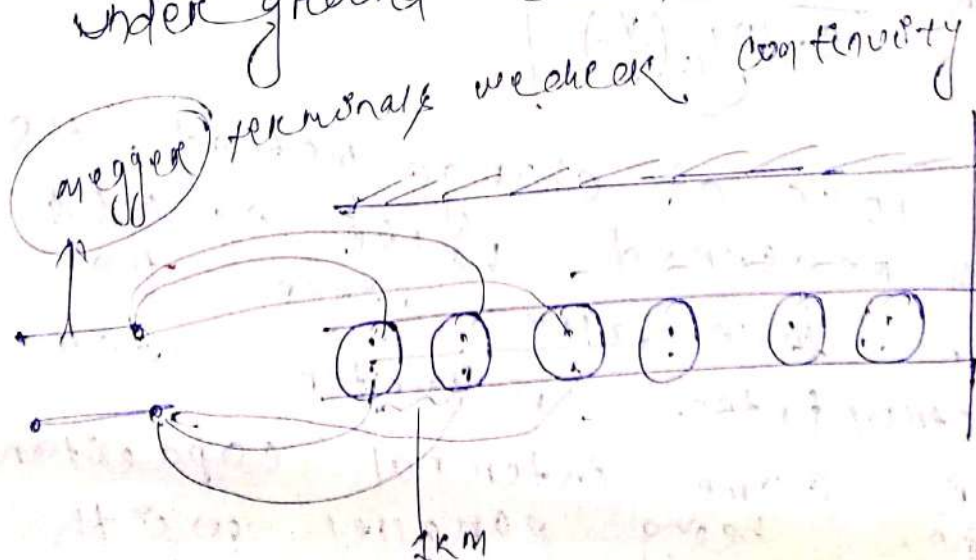 under ground
megger terminals we check continuity
1 KM